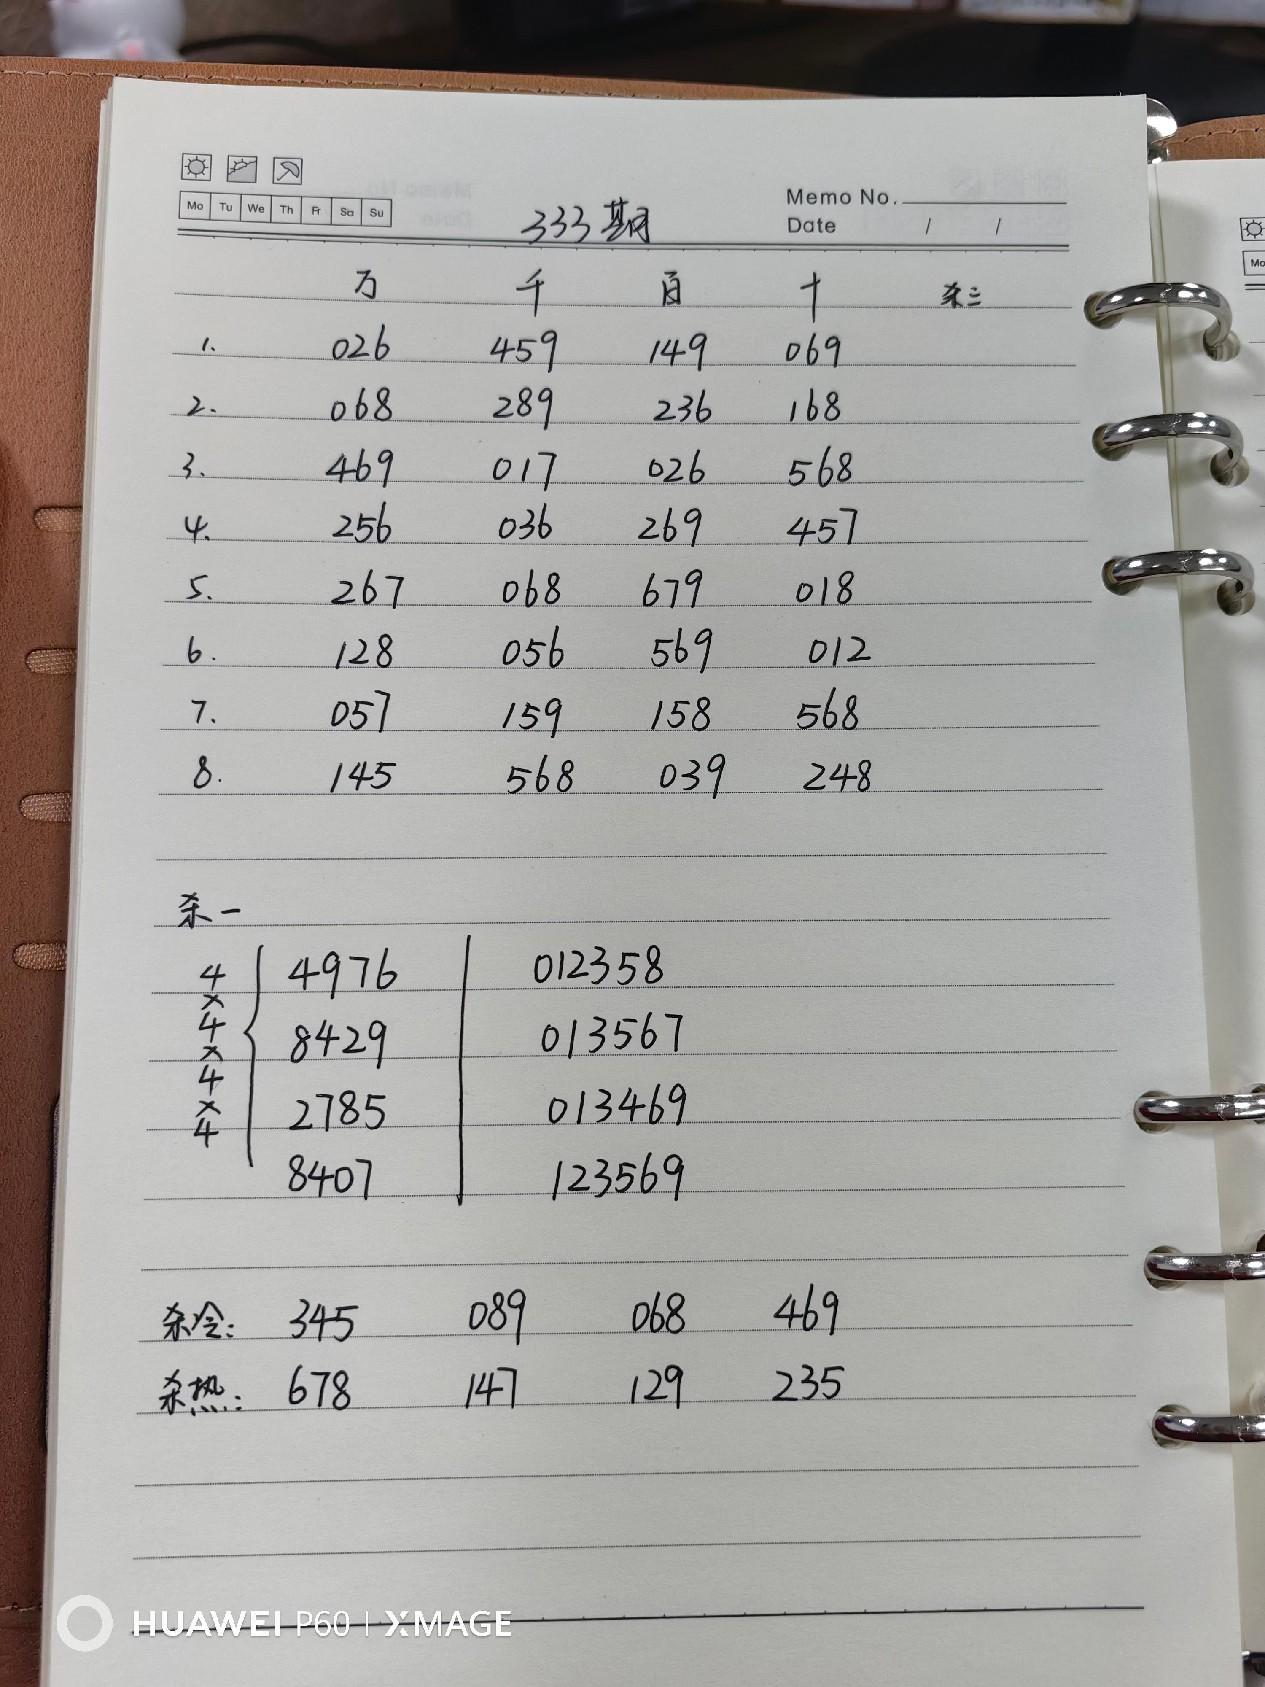 Memo No.
Mo Tu We Th Fr Sa Su
333期
Date / /
万 千 百 十 杀三
1. 026 459 149 069
2. 068 289 236 168
3. 469 017 026 568
4. 256 036 269 457
5. 267 068 679 018
6. 128 056 569 012
7. 057 159 158 568
8. 145 568 039 248
杀一
4×4×4×4
4976 012358
8429 013567
2785 013469
8407 123569
杀冷: 345 089 068 469
杀热: 678 147 129 235
HUAWEI P60 | XMAGE